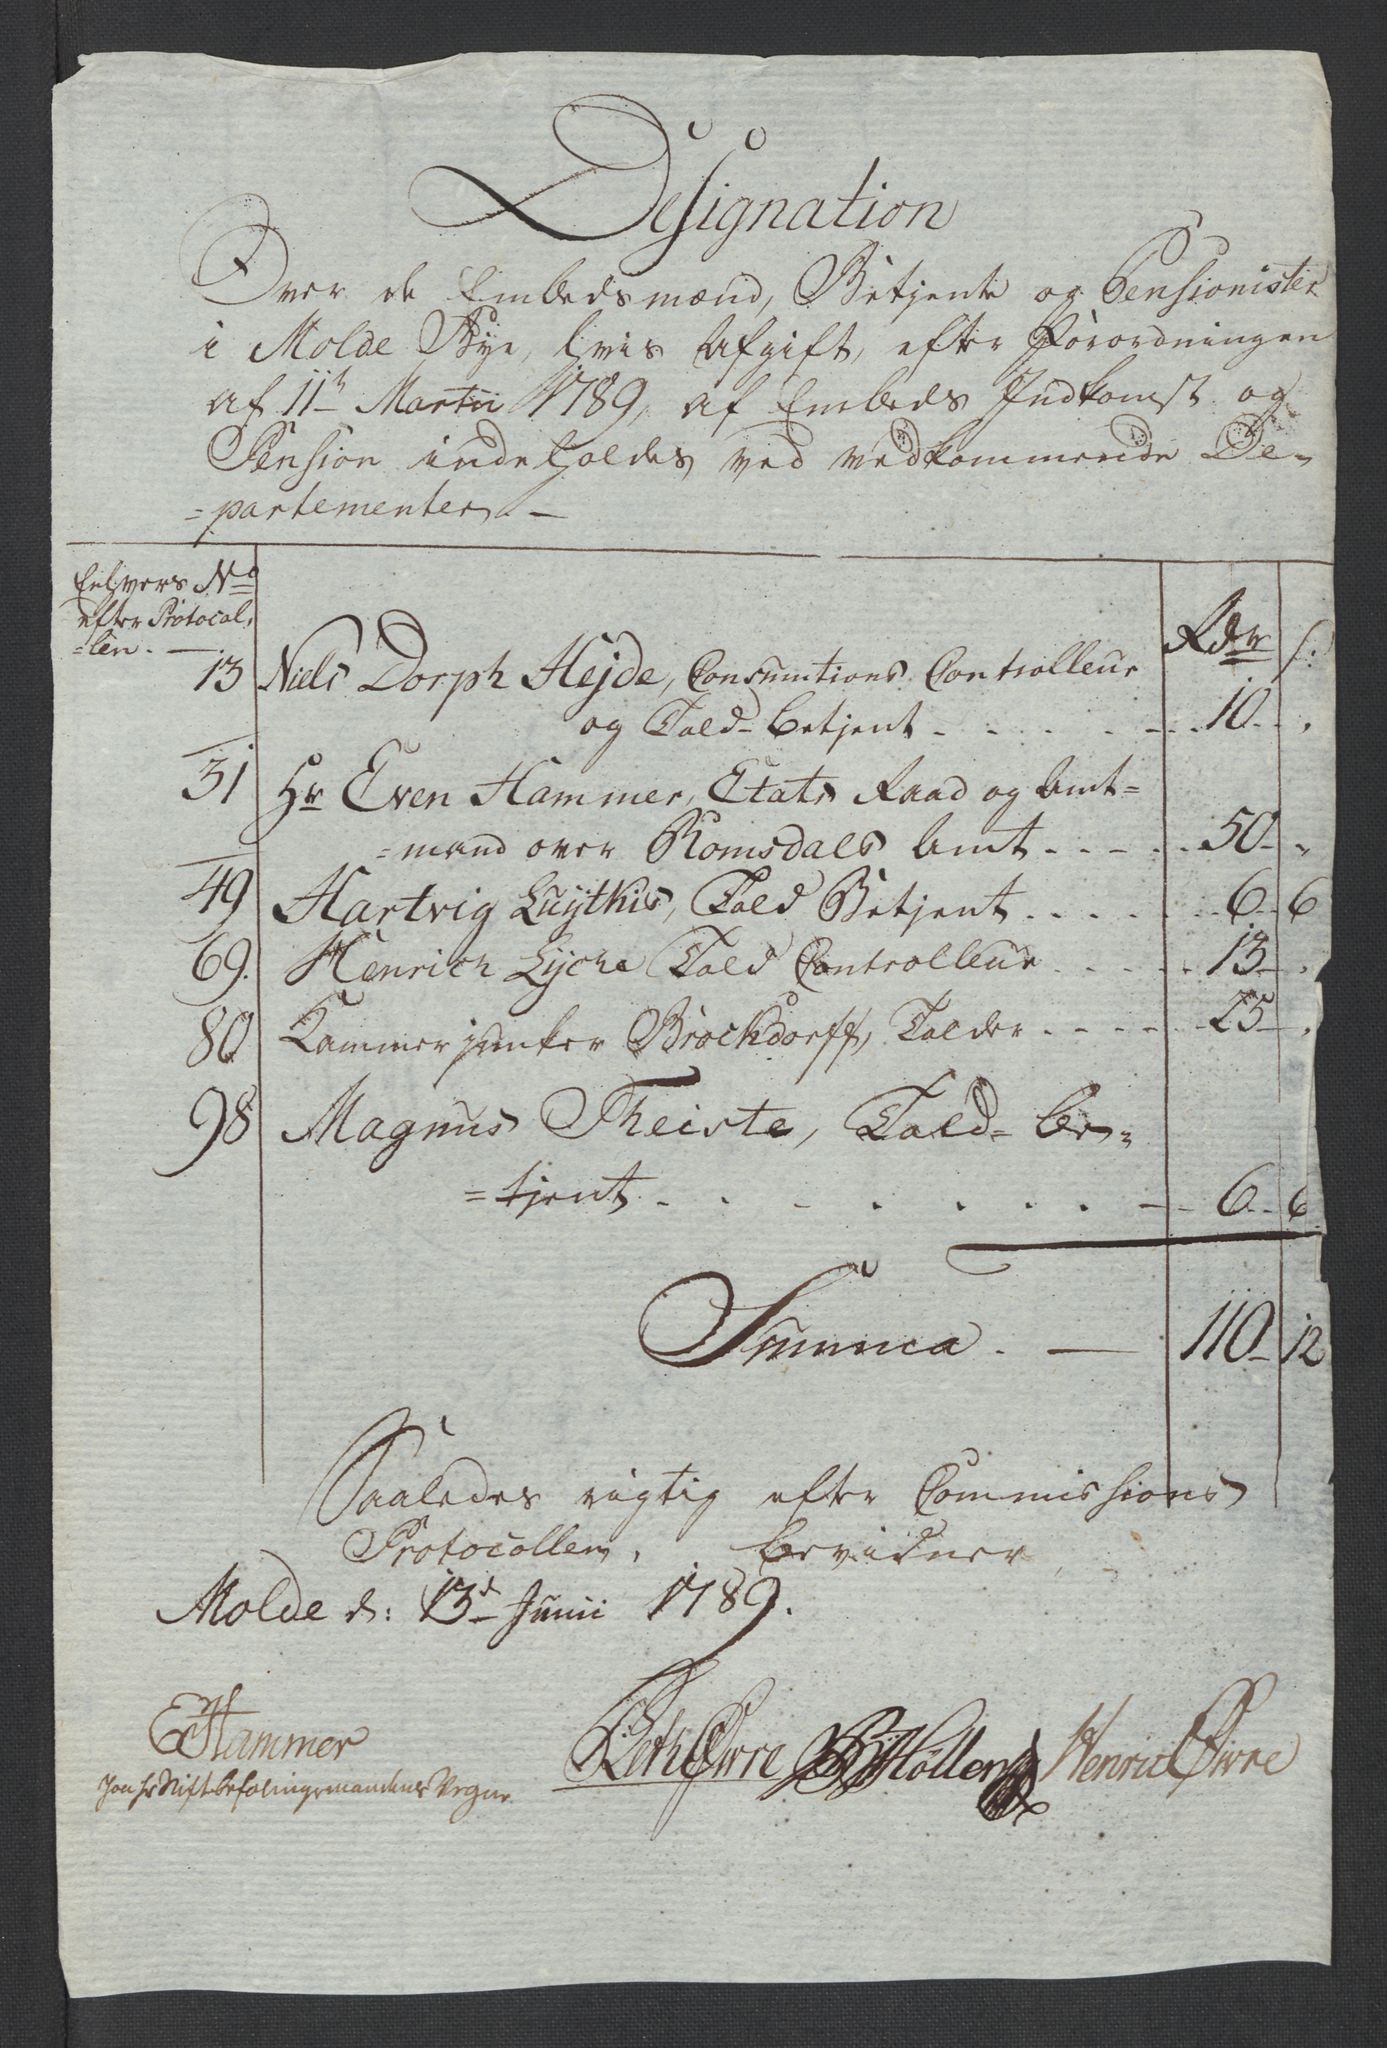 Designation
Over de Embedsmænd, Betjente og Pensionister
i Molde Bye, hvis Afgift, efter Forordningen
af 11te Martii 1789, af Embeds Indkomst og
Pension indeholdes ved vedkommende De-
=partementer. —
Enhvers No
efter Protocol,
=len. —
Rdr s:
13 Niels Dorph Hejde, Consumtions Controlleur
og Told-betjent - - - - - - 10 - .
31 Hr Even Hammer, Etats Raad og Amt=
=mand over Romsdals Amt - - - - - 50 - "
49 Hartvig Luythis, Told Betjent - - - - - 6 - 6
69. Henrich Lyche Told Controlleur - - - - 13 - .
80 Kammerjunker Brockdorff, Tolder - - - - 25 - .
98 Magnus Theiste, Told-be-
=tjent - - - - - - - - 6 - 6
Summa. — 110 - 12
Saaledes rigtig efter Commissions
Protocollen, bevidner
Molde d: 13d Junii 1789.
EHammer
paa hr Stiftbefalingsmandens Vegne
Øwre Møller Henrich Øwre